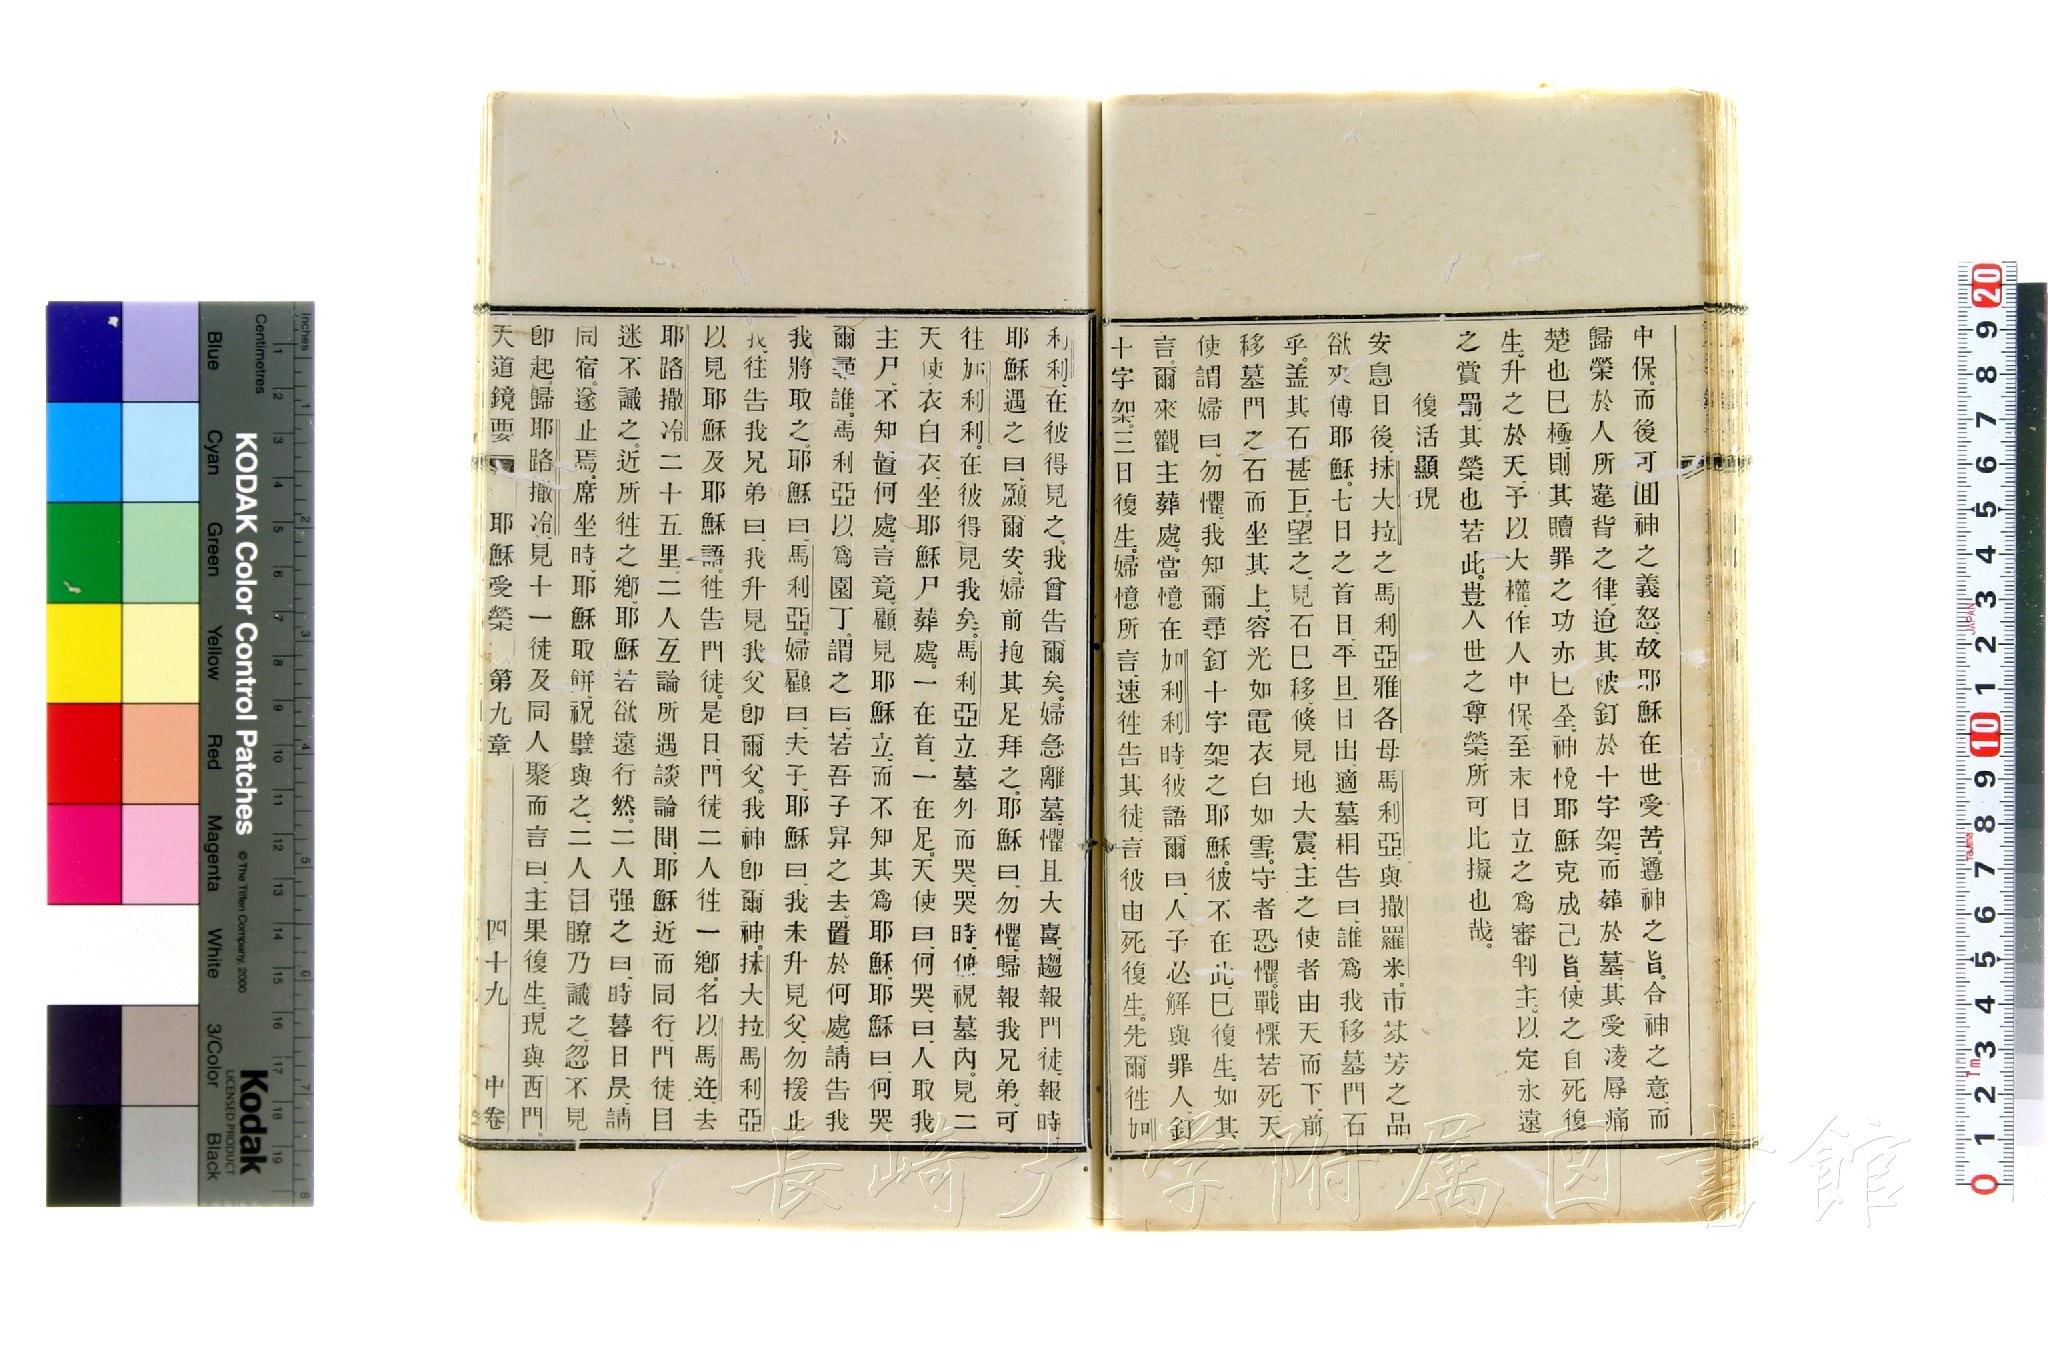 中保、而後可回神之義怒、故耶穌在世受苦、遵神之旨、合神之意、而
歸榮於人所違背之律、迨其被釘於十字架、而葬於墓、其受凌辱痛
楚也已極、則其贖罪之功亦已全、神悅耶穌克成己旨、使之自死復
生、升之於天、予以大權、作人中保、至末日立之爲審判主、以定永遠
之賞罰、其榮也若此、豈人世之尊榮、所可比擬也哉。
復活顯現
安息日後、抹大拉之馬利亞雅各母馬利亞、與撒羅米、市芬芳之品、
欲來傅耶穌。七日之首日、平旦日出、適墓相告曰、誰爲我移墓門石
乎。盖其石甚巨、望之、見石已移、倏見地大震、主之使者由天而下、前
移墓門之石而坐其上、容光如電、衣白如雪。守者恐懼、戰慄若死、天
使謂婦曰、勿懼、我知爾尋釘十字架之耶穌、彼不在此、已復生、如其
言、爾來觀主葬處、當憶在加利利時、彼語爾曰、人子必解與罪人、釘
十字架、三日復生。婦憶所言、速徃告其徒、言彼由死復生。先爾徃加
利利、在彼得見之、我曾告爾矣。婦急離墓、懼且大喜、趨報門徒、報時、
耶穌遇之曰、願爾安、婦前抱其足拜之、耶穌曰、勿懼、歸報我兄弟、可
徃加利利、在彼得見我矣。馬利亞立墓外而哭、哭時、俯視墓內、見二
天使、衣白衣、坐耶穌尸葬處、一在首、一在足、天使曰、何哭、曰、人取我
主尸、不知置何處、言竟、顧見耶穌立、而不知其爲耶穌、耶穌曰、何哭、
爾尋誰。馬利亞以爲園丁、謂之曰、若吾子舁之去、置於何處、請告我、
我將取之、耶穌曰、馬利亞。婦顧曰、夫子、耶穌曰、我未升見父、勿援止
我、往告我兄弟曰、我升見我父卽爾父。我神卽爾神。抹大拉馬利亞
以見耶穌及耶穌語、徃告門徒。是日、門徒二人徃一鄉、名以馬迕、去
耶路撒冷二十五里、二人互論所遇、談論間、耶穌近而同行、門徒目
迷不識之。近所徃之鄉、耶穌若欲遠行然。二人强之曰、時暮日昃、請
同宿、遂止焉。席坐時、耶穌取餅、祝擘與之、二人目瞭乃識之、忽不見
卽起、歸耶路撒冷、見十一徒及同人聚而言曰、主果復生、現與西門、
天道鏡要 耶穌受榮 第九章 四十九 中卷
KODAK Color Control Patches
© The Tiffen Company, 2000
Kodak
LICENSED PRODUCT
Inches
Centimetres
Blue
Cyan
Green
Yellow
Red
Magenta
White
3/Color
Black
JAPAN
長崎大学附属図書館